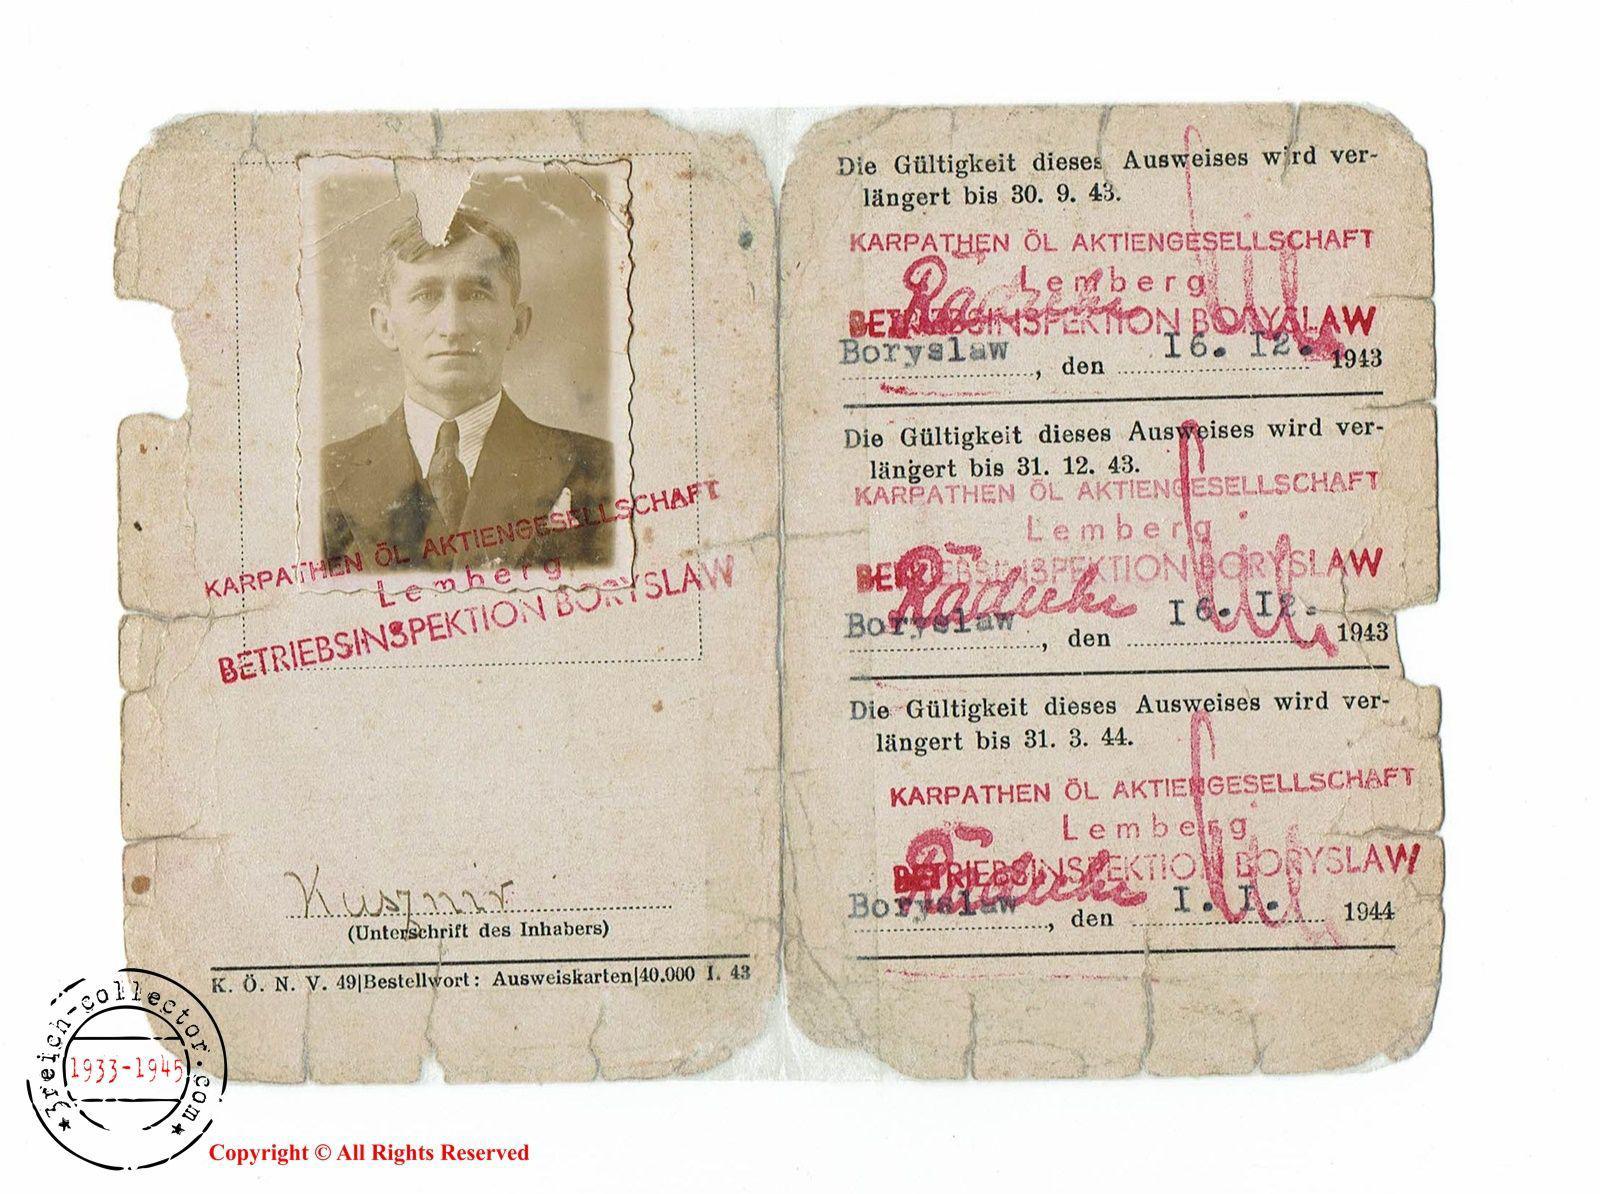 KARPATHEN ÖL AKTIENGESELLSCHAFT
Lemberg
BETRIEBSINSPEKTION BORYSLAW
Kusznir
(Unterschrift des Inhabers)
K. Ö. N. V. 49|Bestellwort: Ausweiskarten|40.000 I. 43
Die Gültigkeit dieses Ausweises wird ver-
längert bis 30. 9. 43.
KARPATHEN ÖL AKTIENGESELLSCHAFT
Lemberg
BETRIEBSINSPEKTION BORYSLAW
Boryslaw, den 16. 12. 1943
Die Gültigkeit dieses Ausweises wird ver-
längert bis 31. 12. 43.
KARPATHEN ÖL AKTIENGESELLSCHAFT
Lemberg
BETRIEBSINSPEKTION BORYSLAW
Boryslaw, den 16. 12. 1943
Die Gültigkeit dieses Ausweises wird ver-
längert bis 31. 3. 44.
KARPATHEN ÖL AKTIENGESELLSCHAFT
Lemberg
BETRIEBSINSPEKTION BORYSLAW
Boryslaw, den I. I. 1944
3reich-collector.com
1933-1945
Copyright © All Rights Reserved